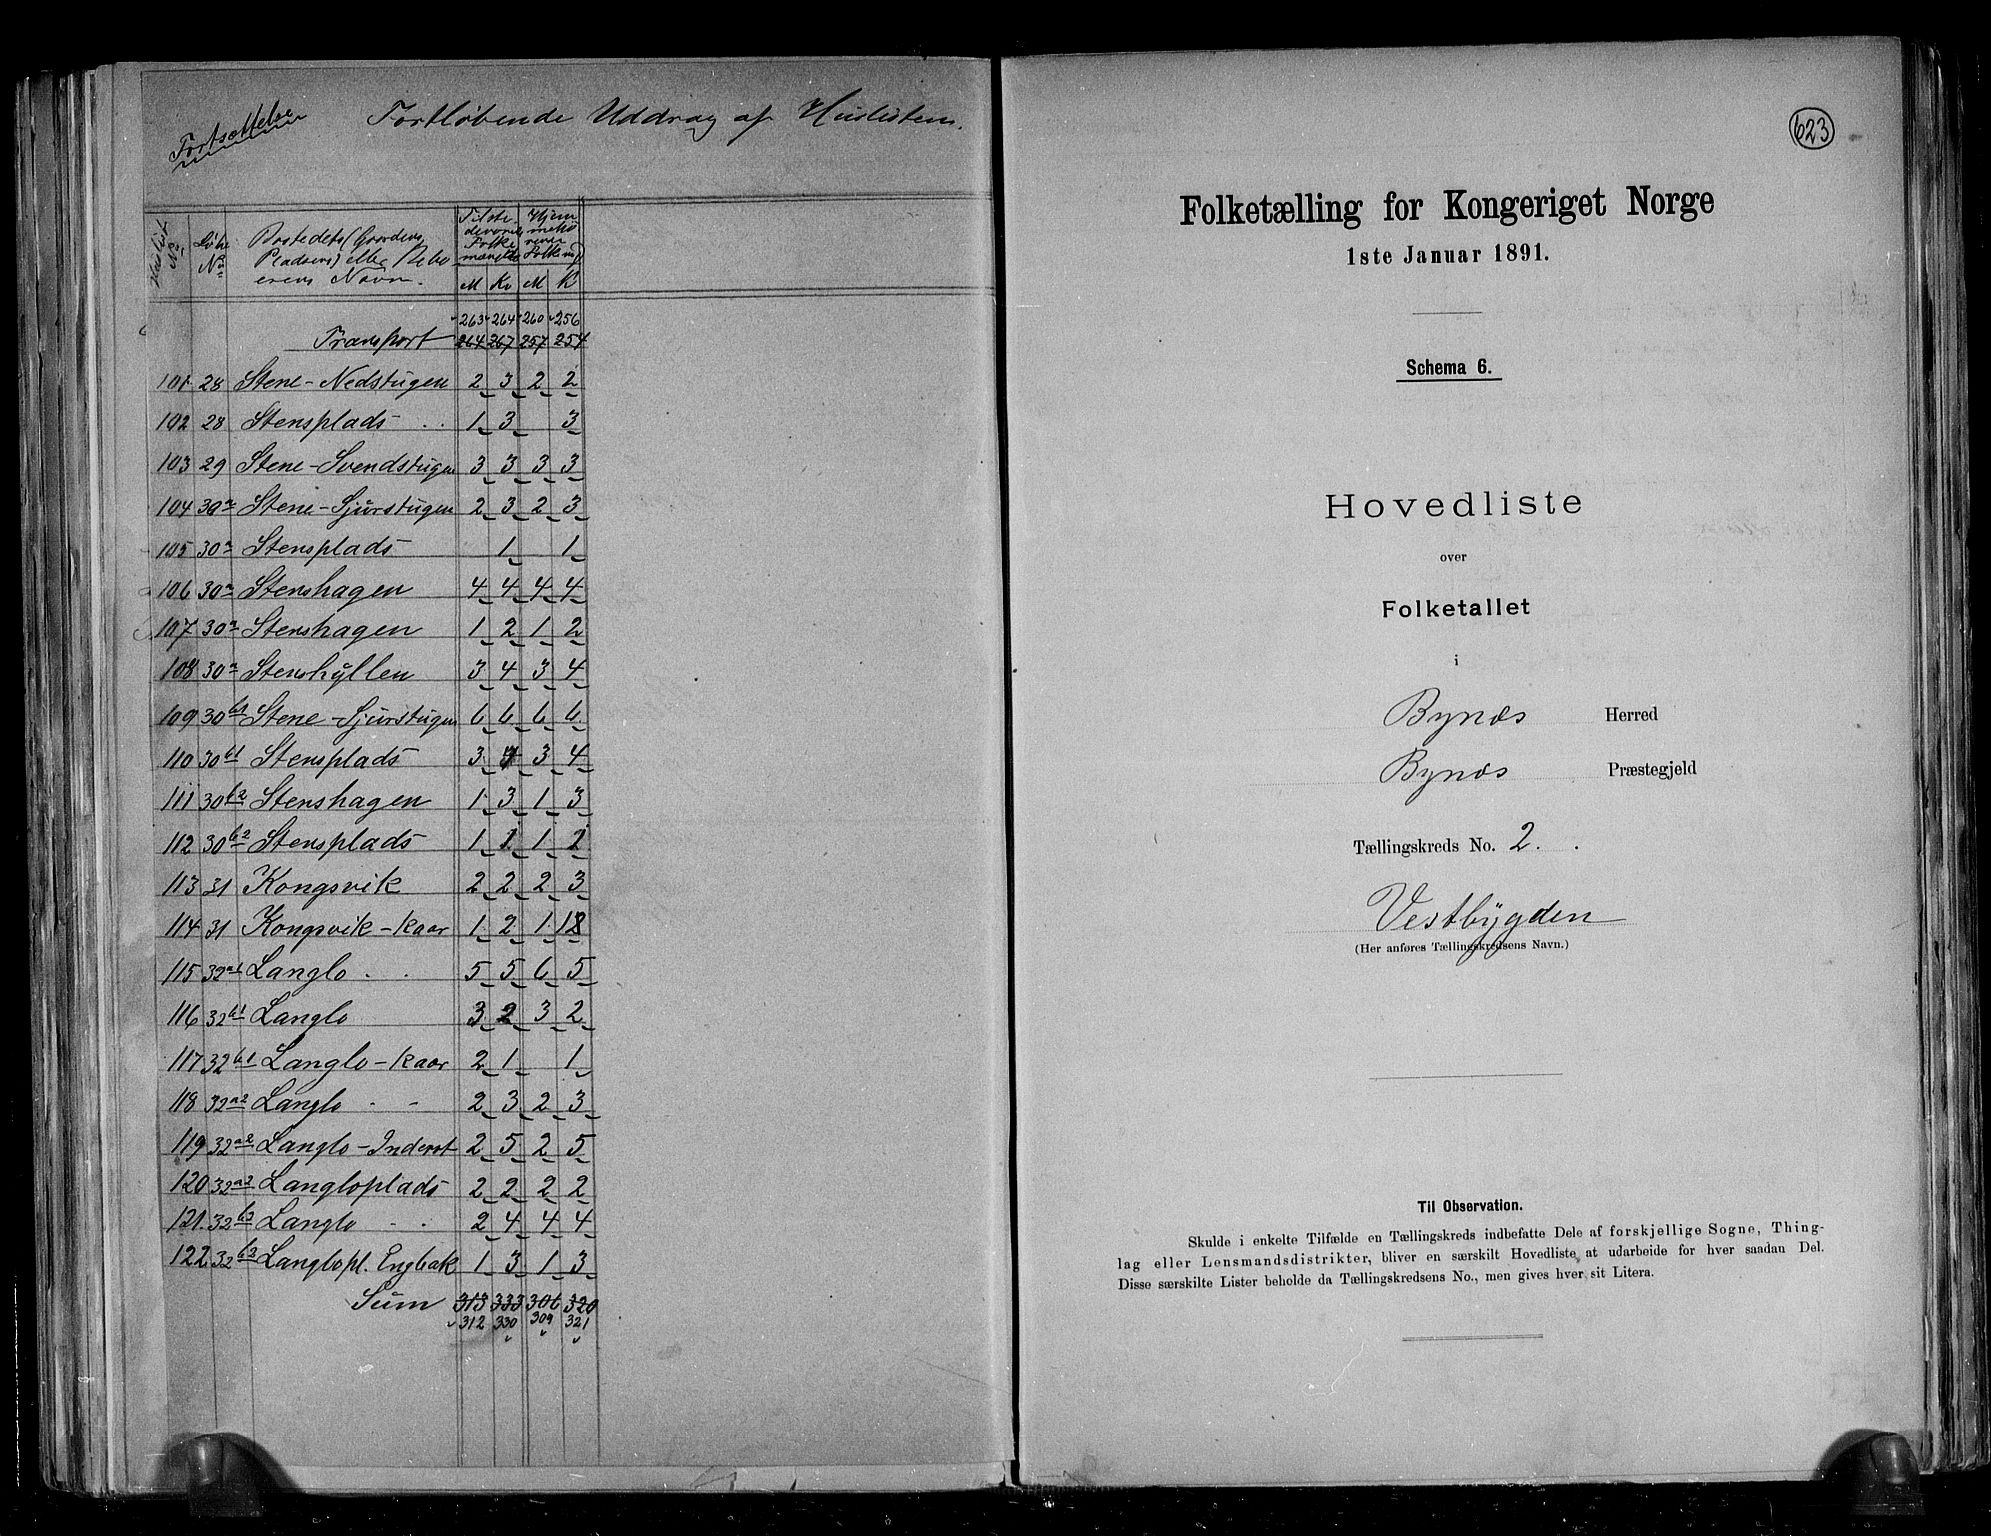 Fortsættelse
Fortløbende Uddrag af Huslisten.
Huslist No
Løbe No
Bostedets (Gaardens,
Pladsens) eller Bebo
erens Navn.
Tilste-
deværende
Folke
mængde
Hjem
mehø
rende
Folkemgd
M Kv M K
263 264 260 256
Transport 264 267 257 254
101 28 Stene-Nedstugen 2 3 2 2
102 28 Stensplads 1 3 3
103 29 Stene-Svendstugen 3 3 3 3
104 30a Stene-Sjurstugen 2 3 2 3
105 30a Stensplads 1 1
106 30a Stenshagen 4 4 4 4
107 30a Stenshagen 1 2 1 2
108 30a Stenshyllen 3 4 3 4
109 30b1 Stene-Sjurstugen 6 6 6 6
110 30b1 Stensplads 3 4 3 4
111 30b2 Stenshagen 1 3 1 3
112 30b2 Stensplads 1 1 1
113 31 Kongsvik 2 2 2 3
114 31 Kongsvik-Kaar 1 2 1
115 32a1 Langlo 5 5 6 5
116 32b1 Langlo 3 2 3 2
117 32b1 Langlo-Kaar 2 1 1
118 32a2 Langlo 2 3 2 3
119 32a2 Langlo-Inderst 2 5 2 5
120 32a2 Langloplads 2 2 2 2
121. 32b2 Langlo 2 4 4 4
122 32b2 Langlopl. Engbak 1 3 1 3
Sum 313 333 306 320
312 330 309 321
623
Folketælling for Kongeriget Norge
1ste Januar 1891.
Schema 6.
Hovedliste
over
Folketallet
i
Bynæs Herred
Bynæs Præstegjeld
Tællingskreds No. 2.
Vestbygden
(Her anføres Tællingskredsens Navn.)
Til Observation.
Skulde i enkelte Tilfælde en Tællingskreds indbefatte Dele af forskjellige Sogne, Thing-
lag eller Lensmandsdistrikter, bliver en særskilt Hovedliste at udarbeide for hver saadan Del.
Disse særskilte Lister beholde da Tællingskredsens No., men gives hver sit Litera.